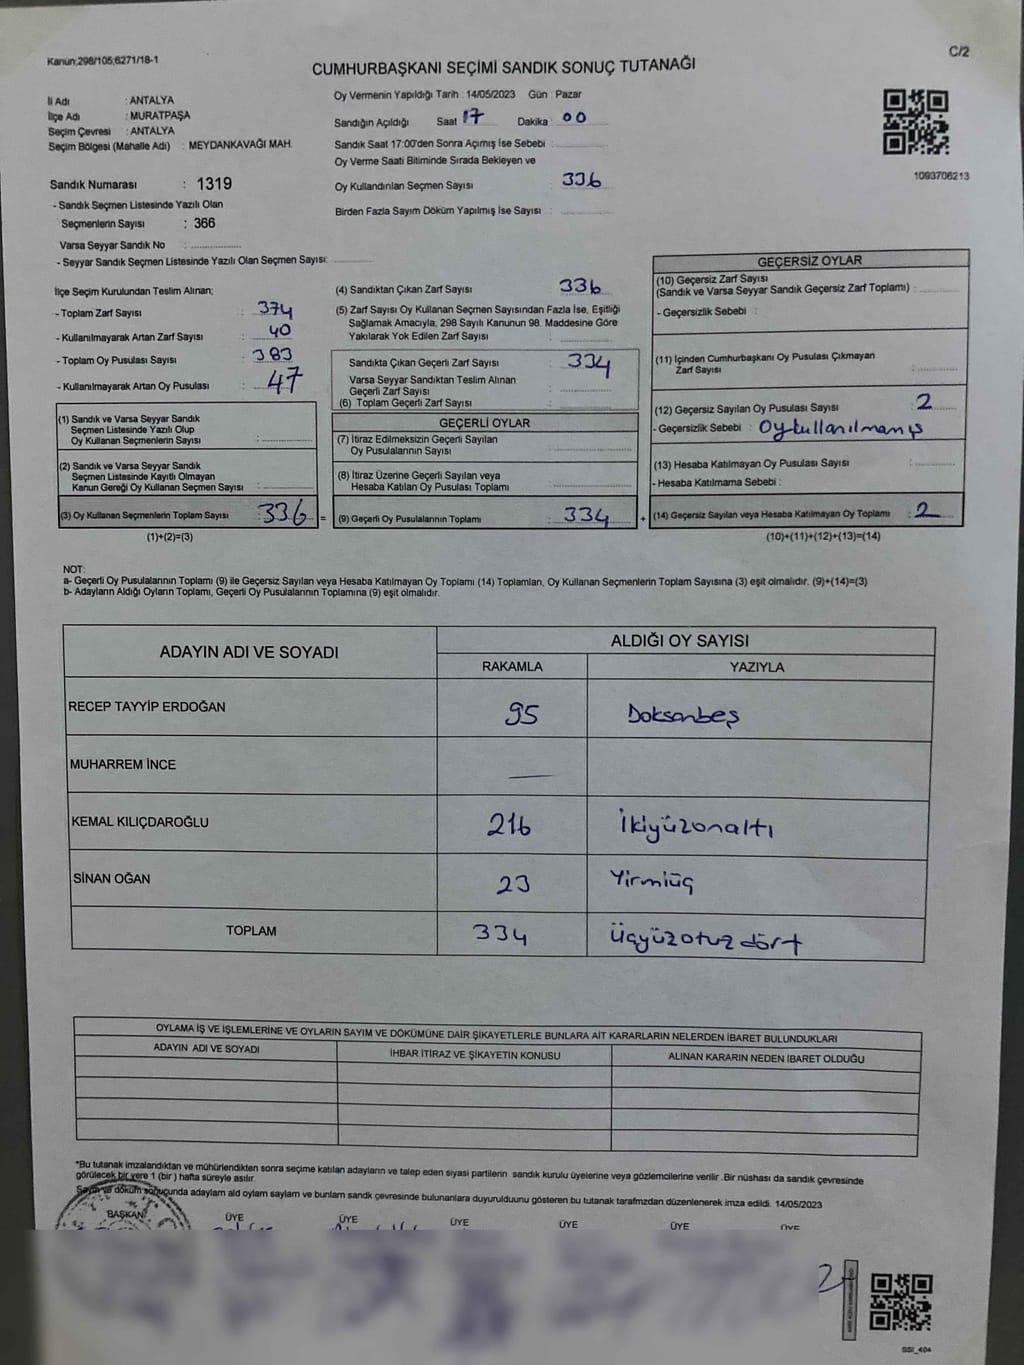 Kanun;298/105;6271/18-1
C/2
CUMHURBAŞKANI SEÇİMİ SANDIK SONUÇ TUTANAĞI
İl Adı : ANTALYA
İlçe Adı : MURATPAŞA
Seçim Çevresi : ANTALYA
Seçim Bölgesi (Mahalle Adı) : MEYDANKAVAĞI MAH.
Oy Vermenin Yapıldığı Tarih : 14/05/2023 Gün : Pazar
Sandığın Açıldığı Saat 17 Dakika : 00
Sandık Saat 17:00'den Sonra Açımış İse Sebebi :
Oy Verme Saati Bitiminde Sırada Bekleyen ve
Oy Kullandırılan Seçmen Sayısı : 336
Birden Fazla Sayım Döküm Yapılmış İse Sayısı :
1093706213
Sandık Numarası : 1319
- Sandık Seçmen Listesinde Yazılı Olan
Seçmenlerin Sayısı : 366
Varsa Seyyar Sandık No :
- Seyyar Sandık Seçmen Listesinde Yazılı Olan Seçmen Sayısı:
İlçe Seçim Kurulundan Teslim Alınan;
- Toplam Zarf Sayısı : 374
- Kullanılmayarak Artan Zarf Sayısı : 40
- Toplam Oy Pusulası Sayısı : 383
- Kullanılmayarak Artan Oy Pusulası : 47
(1) Sandık ve Varsa Seyyar Sandık
Seçmen Listesinde Yazılı Olup
Oy Kullanan Seçmenlerin Sayısı :
(2) Sandık ve Varsa Seyyar Sandık
Seçmen Listesinde Kayıtlı Olmayan
Kanun Gereği Oy Kullanan Seçmen Sayısı :
(3) Oy Kullanan Seçmenlerin Toplam Sayısı : 336 =
(1)+(2)=(3)
(4) Sandıktan Çıkan Zarf Sayısı : 336
(5) Zarf Sayısı Oy Kullanan Seçmen Sayısından Fazla İse, Eşitliği
Sağlamak Amacıyla, 298 Sayılı Kanunun 98. Maddesine Göre
Yakılarak Yok Edilen Zarf Sayısı :
Sandıkta Çıkan Geçerli Zarf Sayısı : 334
Varsa Seyyar Sandıktan Teslim Alınan
Geçerli Zarf Sayısı :
(6) Toplam Geçerli Zarf Sayısı :
GEÇERLİ OYLAR
(7) İtiraz Edilmeksizin Geçerli Sayılan
Oy Pusulalarının Sayısı :
(8) İtiraz Üzerine Geçerli Sayılan veya
Hesaba Katılan Oy Pusulası Toplamı :
(9) Geçerli Oy Pusulalarının Toplamı : 334 +
GEÇERSİZ OYLAR
(10) Geçersiz Zarf Sayısı
(Sandık ve Varsa Seyyar Sandık Geçersiz Zarf Toplamı) :
- Geçersizlik Sebebi :
(11) İçinden Cumhurbaşkanı Oy Pusulası Çıkmayan
Zarf Sayısı :
(12) Geçersiz Sayılan Oy Pusulası Sayısı : 2
- Geçersizlik Sebebi : Oy kullanılmamış
(13) Hesaba Katılmayan Oy Pusulası Sayısı :
- Hesaba Katılmama Sebebi :
(14) Geçersiz Sayılan veya Hesaba Katılmayan Oy Toplamı : 2
(10)+(11)+(12)+(13)=(14)
NOT:
a- Geçerli Oy Pusulalarının Toplamı (9) ile Geçersiz Sayılan veya Hesaba Katılmayan Oy Toplamı (14) Toplamları, Oy Kullanan Seçmenlerin Toplam Sayısına (3) eşit olmalıdır. (9)+(14)=(3)
b- Adayların Aldığı Oyların Toplamı, Geçerli Oy Pusulalarının Toplamına (9) eşit olmalıdır.
ADAYIN ADI VE SOYADI
ALDIĞI OY SAYISI
RAKAMLA YAZIYLA
RECEP TAYYİP ERDOĞAN 95 Doksanbeş
MUHARREM İNCE —
KEMAL KILIÇDAROĞLU 216 İkiyüzonaltı
SİNAN OĞAN 23 Yirmiüç
TOPLAM 334 Üçyüzotuzdört
OYLAMA İŞ VE İŞLEMLERİNE VE OYLARIN SAYIM VE DÖKÜMÜNE DAİR ŞİKAYETLERLE BUNLARA AİT KARARLARIN NELERDEN İBARET BULUNDUKLARI
ADAYIN ADI VE SOYADI İHBAR İTİRAZ VE ŞİKAYETİN KONUSU ALINAN KARARIN NEDEN İBARET OLDUĞU
*Bu tutanak imzalandıktan ve mühürlendikten sonra seçime katılan adayların ve talep eden siyasi partilerin sandık kurulu üyelerine veya gözlemcilerine verilir .Bir nüshası da sandık çevresinde
görülecek bir yere 1 (bir ) hafta süreyle asılır.
Sayım ve döküm sonuçunda adayların ald oyların sayların ve bunların sandk çevresinde bulunanlara duyurulduunu gösteren bu tutanak tarafmzdan düzenlenerek imza edildi. 14/05/2023
BAŞKAN ÜYE ÜYE ÜYE ÜYE ÜYE ÜYE
SSI_404